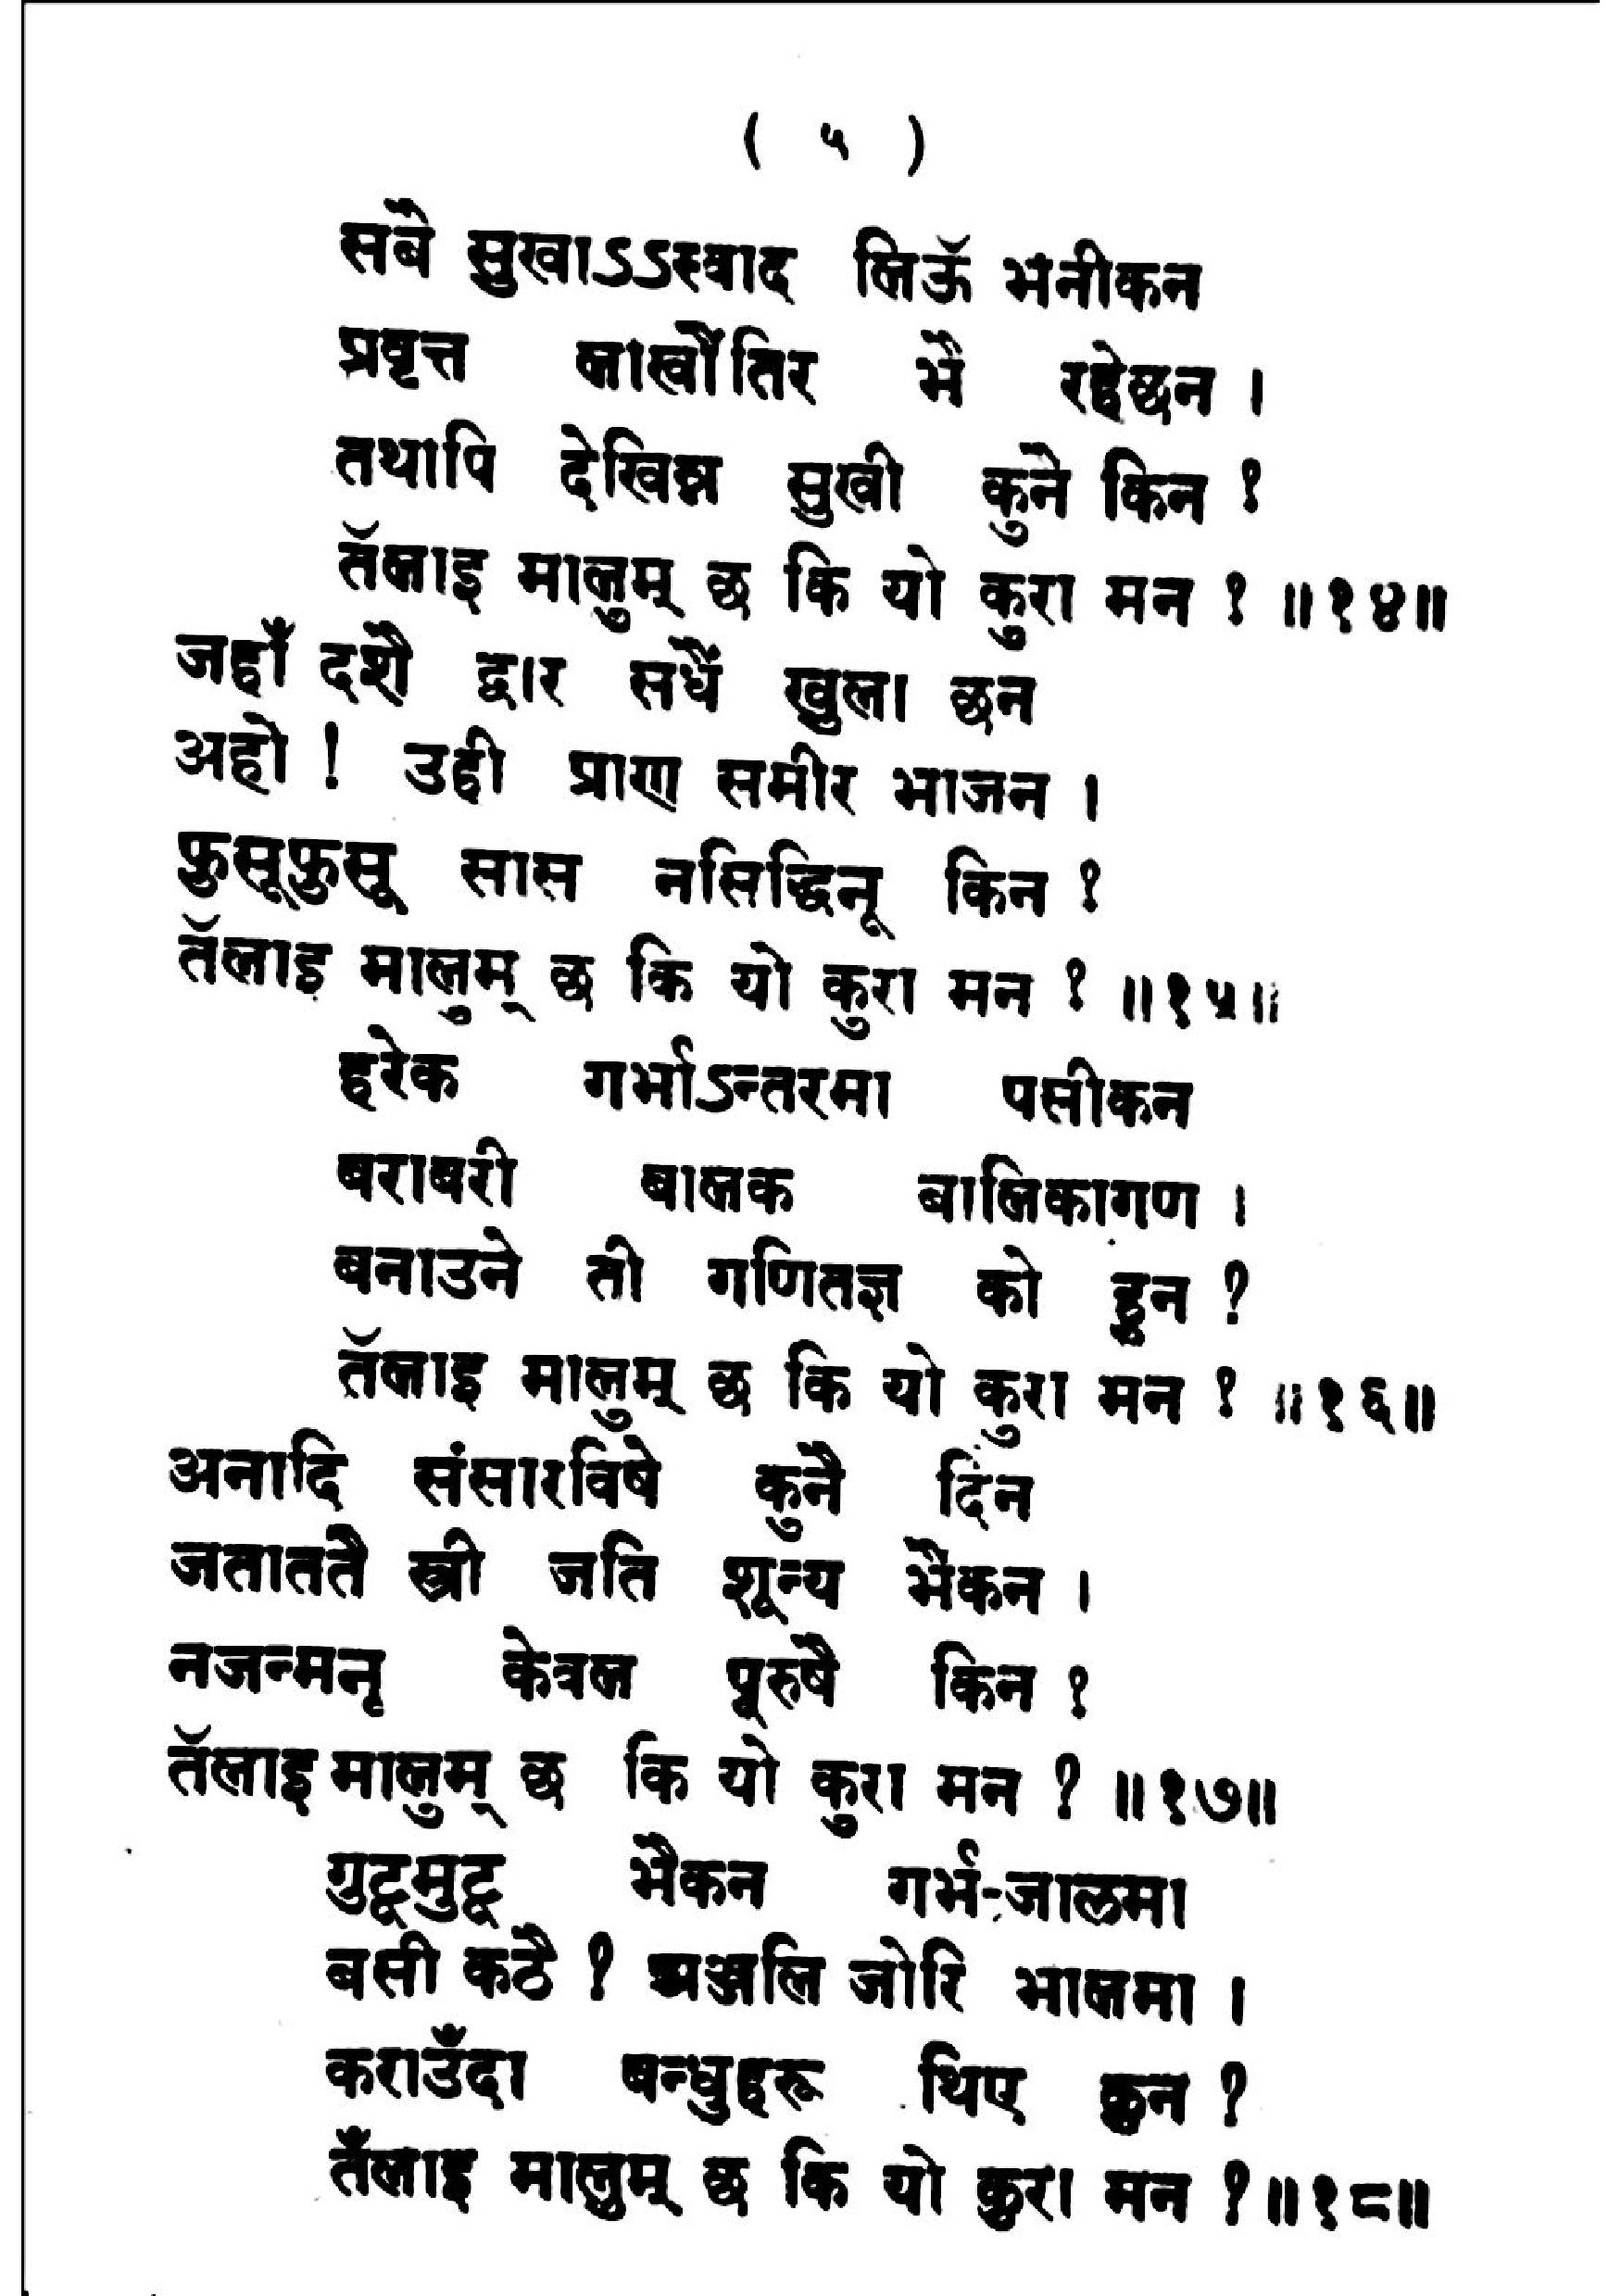 ( ५ )
सबै सुखाऽऽस्वाद लिऊँ भनीकन
प्रवृत्त लाखौंतिर भै रहेछन ।
तथापि देखिन्न सुखी कुनै किन ?
तँलाइ मालुम् छ कि यो कुरा मन ? ॥१४॥
जहाँ दशै द्वार सधैं खुला छन
अहो ! उही प्राण समीर भाजन ।
फुसूफुसू सास नसिद्धिनू किन ?
तँलाइ मालुम् छ कि यो कुरा मन ? ॥१५॥
हरेक गर्भाऽन्तरमा पसीकन
बराबरी बालक बालिकागण ।
बनाउने ती गणितज्ञ को हुन ?
तँलाइ मालुम् छ कि यो कुरा मन ? ॥१६॥
अनादि संसारविषे कुनै दिन
जताततै स्त्री जति शून्य भैकन ।
नजन्मनृ केवल पूरुषै किन ?
तँलाइ मालुम् छ कि यो कुरा मन ? ॥१७॥
गुटूमुटू भैकन गर्भ-जालमा
बसी कठै ? अञ्जलि जोरि भालमा ।
कराउँदा बन्धुहरू थिए कुन ?
तँलाइ मालुम् छ कि यो कुरा मन ? ॥१८॥